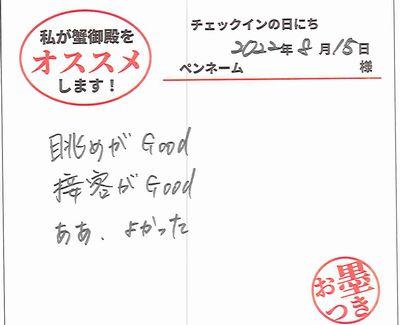 私が蟹御殿を
オススメ
します！
チェックインの日にち
2022年8月15日
ペンネーム 様
眺めがGood
接客がGood
ああ、よかった
お墨つき